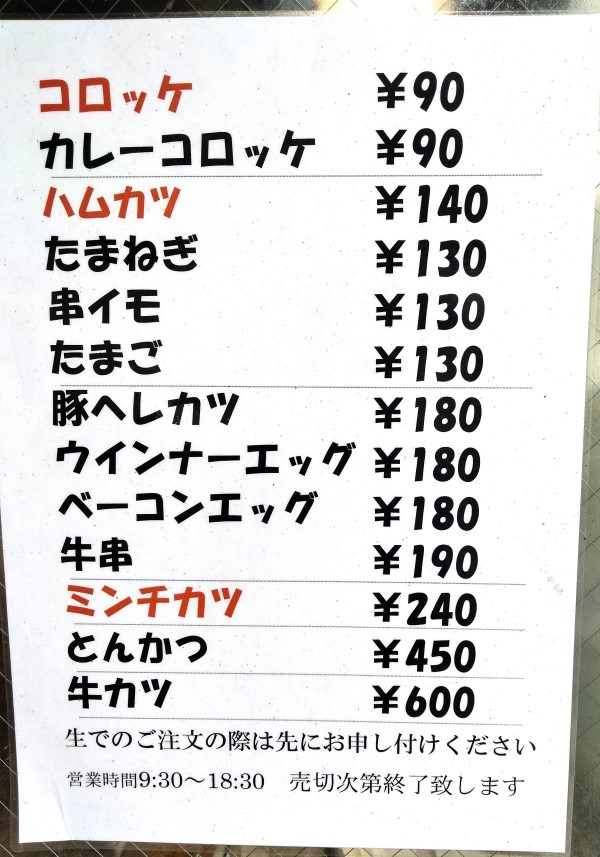 コロッケ ¥90
カレーコロッケ ¥90
ハムカツ ¥140
たまねぎ ¥130
串イモ ¥130
たまご ¥130
豚ヘレカツ ¥180
ウインナーエッグ ¥180
ベーコンエッグ ¥180
牛串 ¥190
ミンチカツ ¥240
とんかつ ¥450
牛カツ ¥600
生でのご注文の際は先にお申し付けください
営業時間9:30～18:30 売切次第終了致します